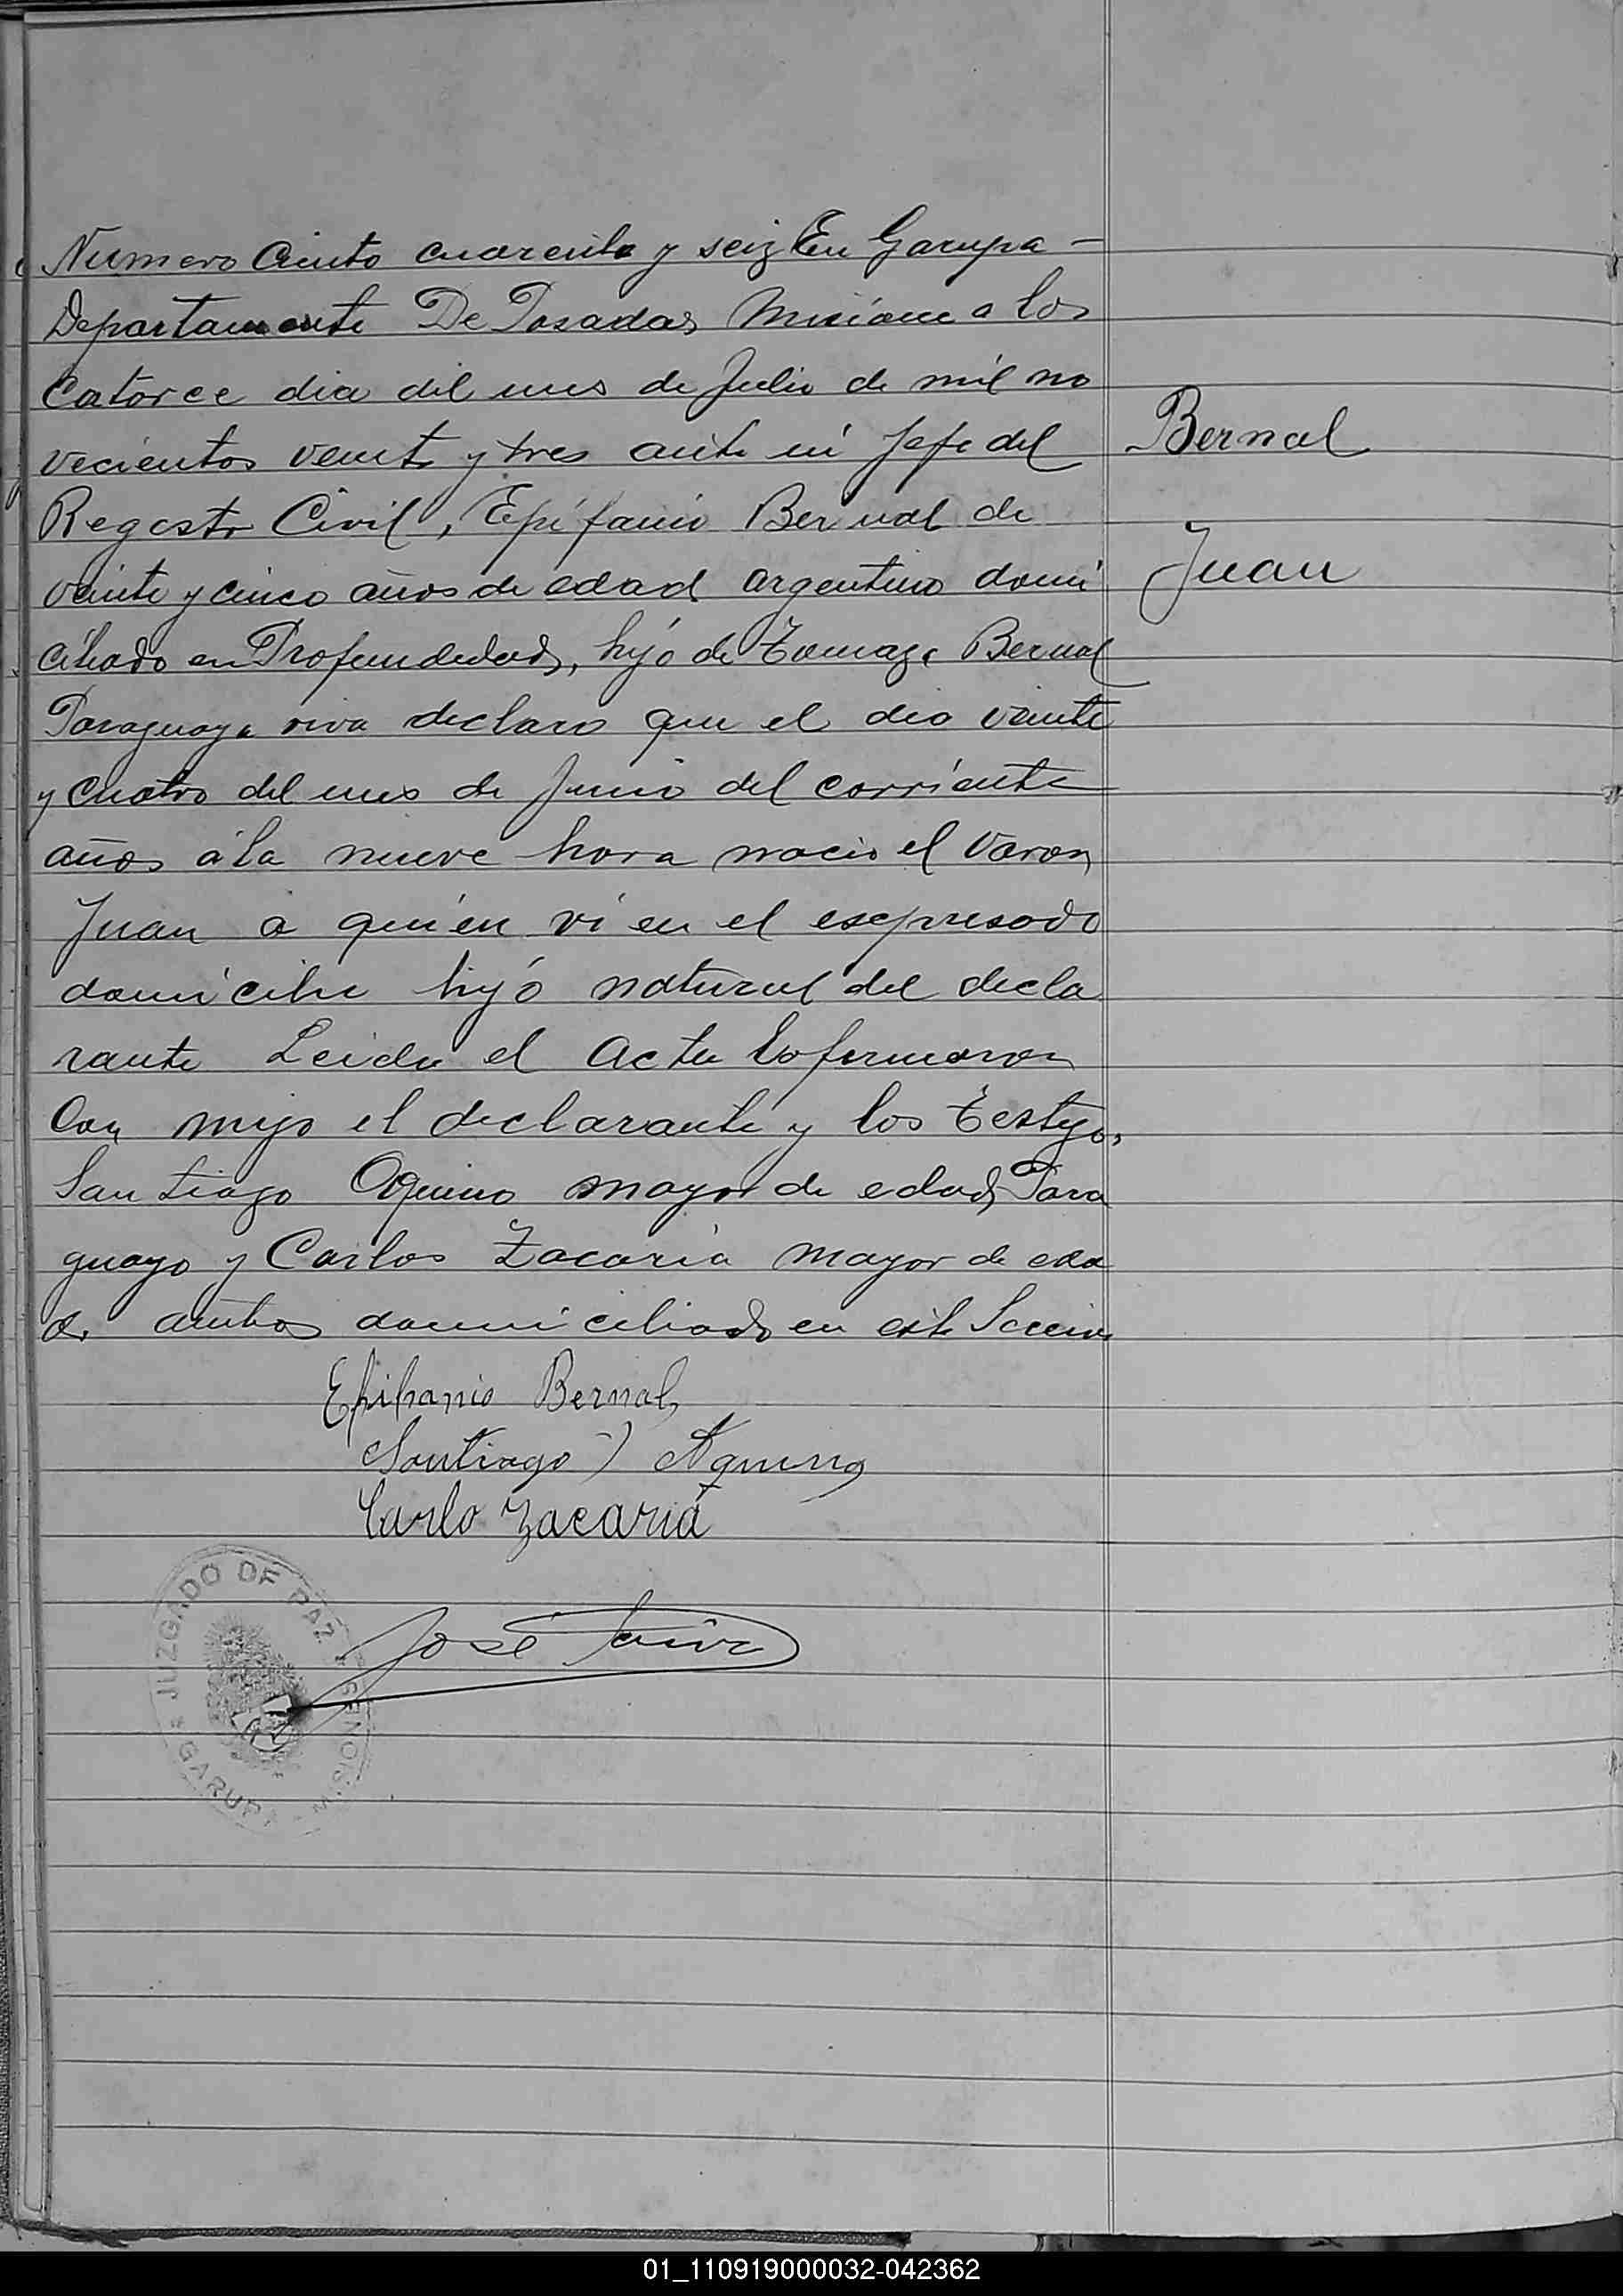 Numero Ciento cuarenta y seiz En Garupa -
Departamento De Posadas Misione a los
Catorce dia del mes de Julio de mil no
vecientos veinte y tres ante mi Jefe del
Regestro Civil, Epifanio Bernal de
veinte y cinco años de edad argentino domi
ciliado en Profundedad, hijo de Tomaza Bernal
Paraguaya viva declaro que el dia veinte
y cuatro del mes de Junio del corriente
años a la nueve hora nacio el Varon
Juan a quien vi en el esepresado
domicilio hijo natural del decla
rante Leida el Acta La firmaron
Con migo el declarante y los Testigos,
Santiago Aquino mayor de edad Para
guayo y Carlos Zacaria mayor de eda
d. ambos domiciliado en este Seccion
Bernal
Juan
Epifanio Bernal
Santiago Aquino
Carlo Zacaria
José
JUZGADO DE PAZ
GARUPA
MISIONES
01_110919000032-042362